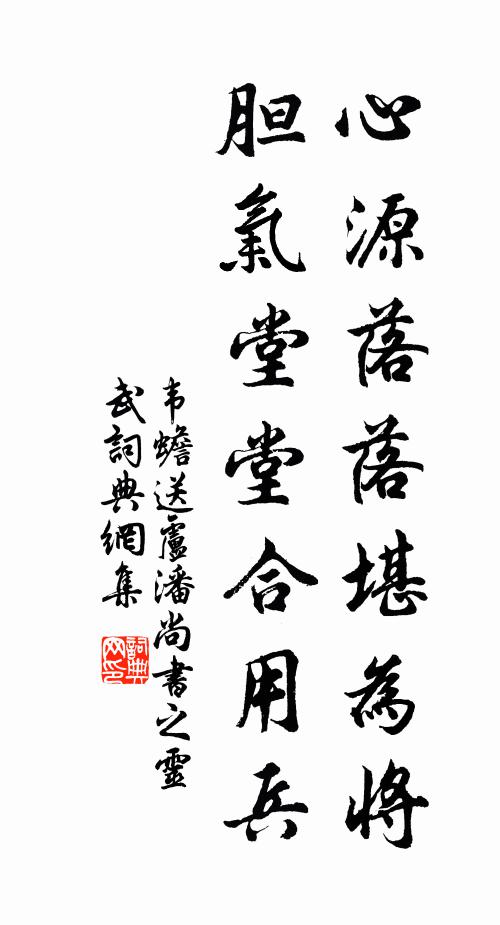 心源落落堪為將
胆氣堂堂合用兵
韦蟾送盧潘尚書之靈
武詞典網集
詞典网印